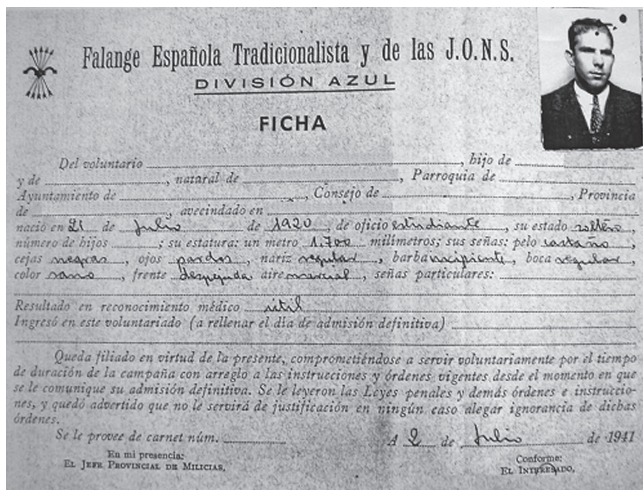 Falange Española Tradicionalista y de las J.O.N.S.
DIVISIÓN AZUL
FICHA
Del voluntario , hijo de
y de , natural de , Parroquia de
Ayuntamiento de , Consejo de , Provincia
de , avecindado en
nació en 21 de Julio de 1920, de oficio estudiante, su estado soltero,
número de hijos ; su estatura: un metro 1.700 milímetros; sus señas: pelo castaño
cejas negras, ojos pardos, nariz regular, barba incipiente, boca regular,
color sano, frente despejada aire marcial, señas particulares:
Resultado en reconocimiento médico útil
Ingresó en este voluntariado (a rellenar el día de admisión definitiva)
Queda filiado en virtud de la presente, comprometiéndose a servir voluntariamente por el tiempo
de duración de la campaña con arreglo a las instrucciones y órdenes vigentes desde el momento en que
se le comunique su admisión definitiva. Se le leyeron las Leyes penales y demás órdenes e instruccio-
nes, y quedó advertido que no le servirá de justificación en ningún caso alegar ignorancia de dichas
órdenes.
Se le provee de carnet núm. A 2 de Julio de 1941
En mi presencia:
EL JEFE PROVINCIAL DE MILICIAS,
Conforme:
EL INTERESADO,